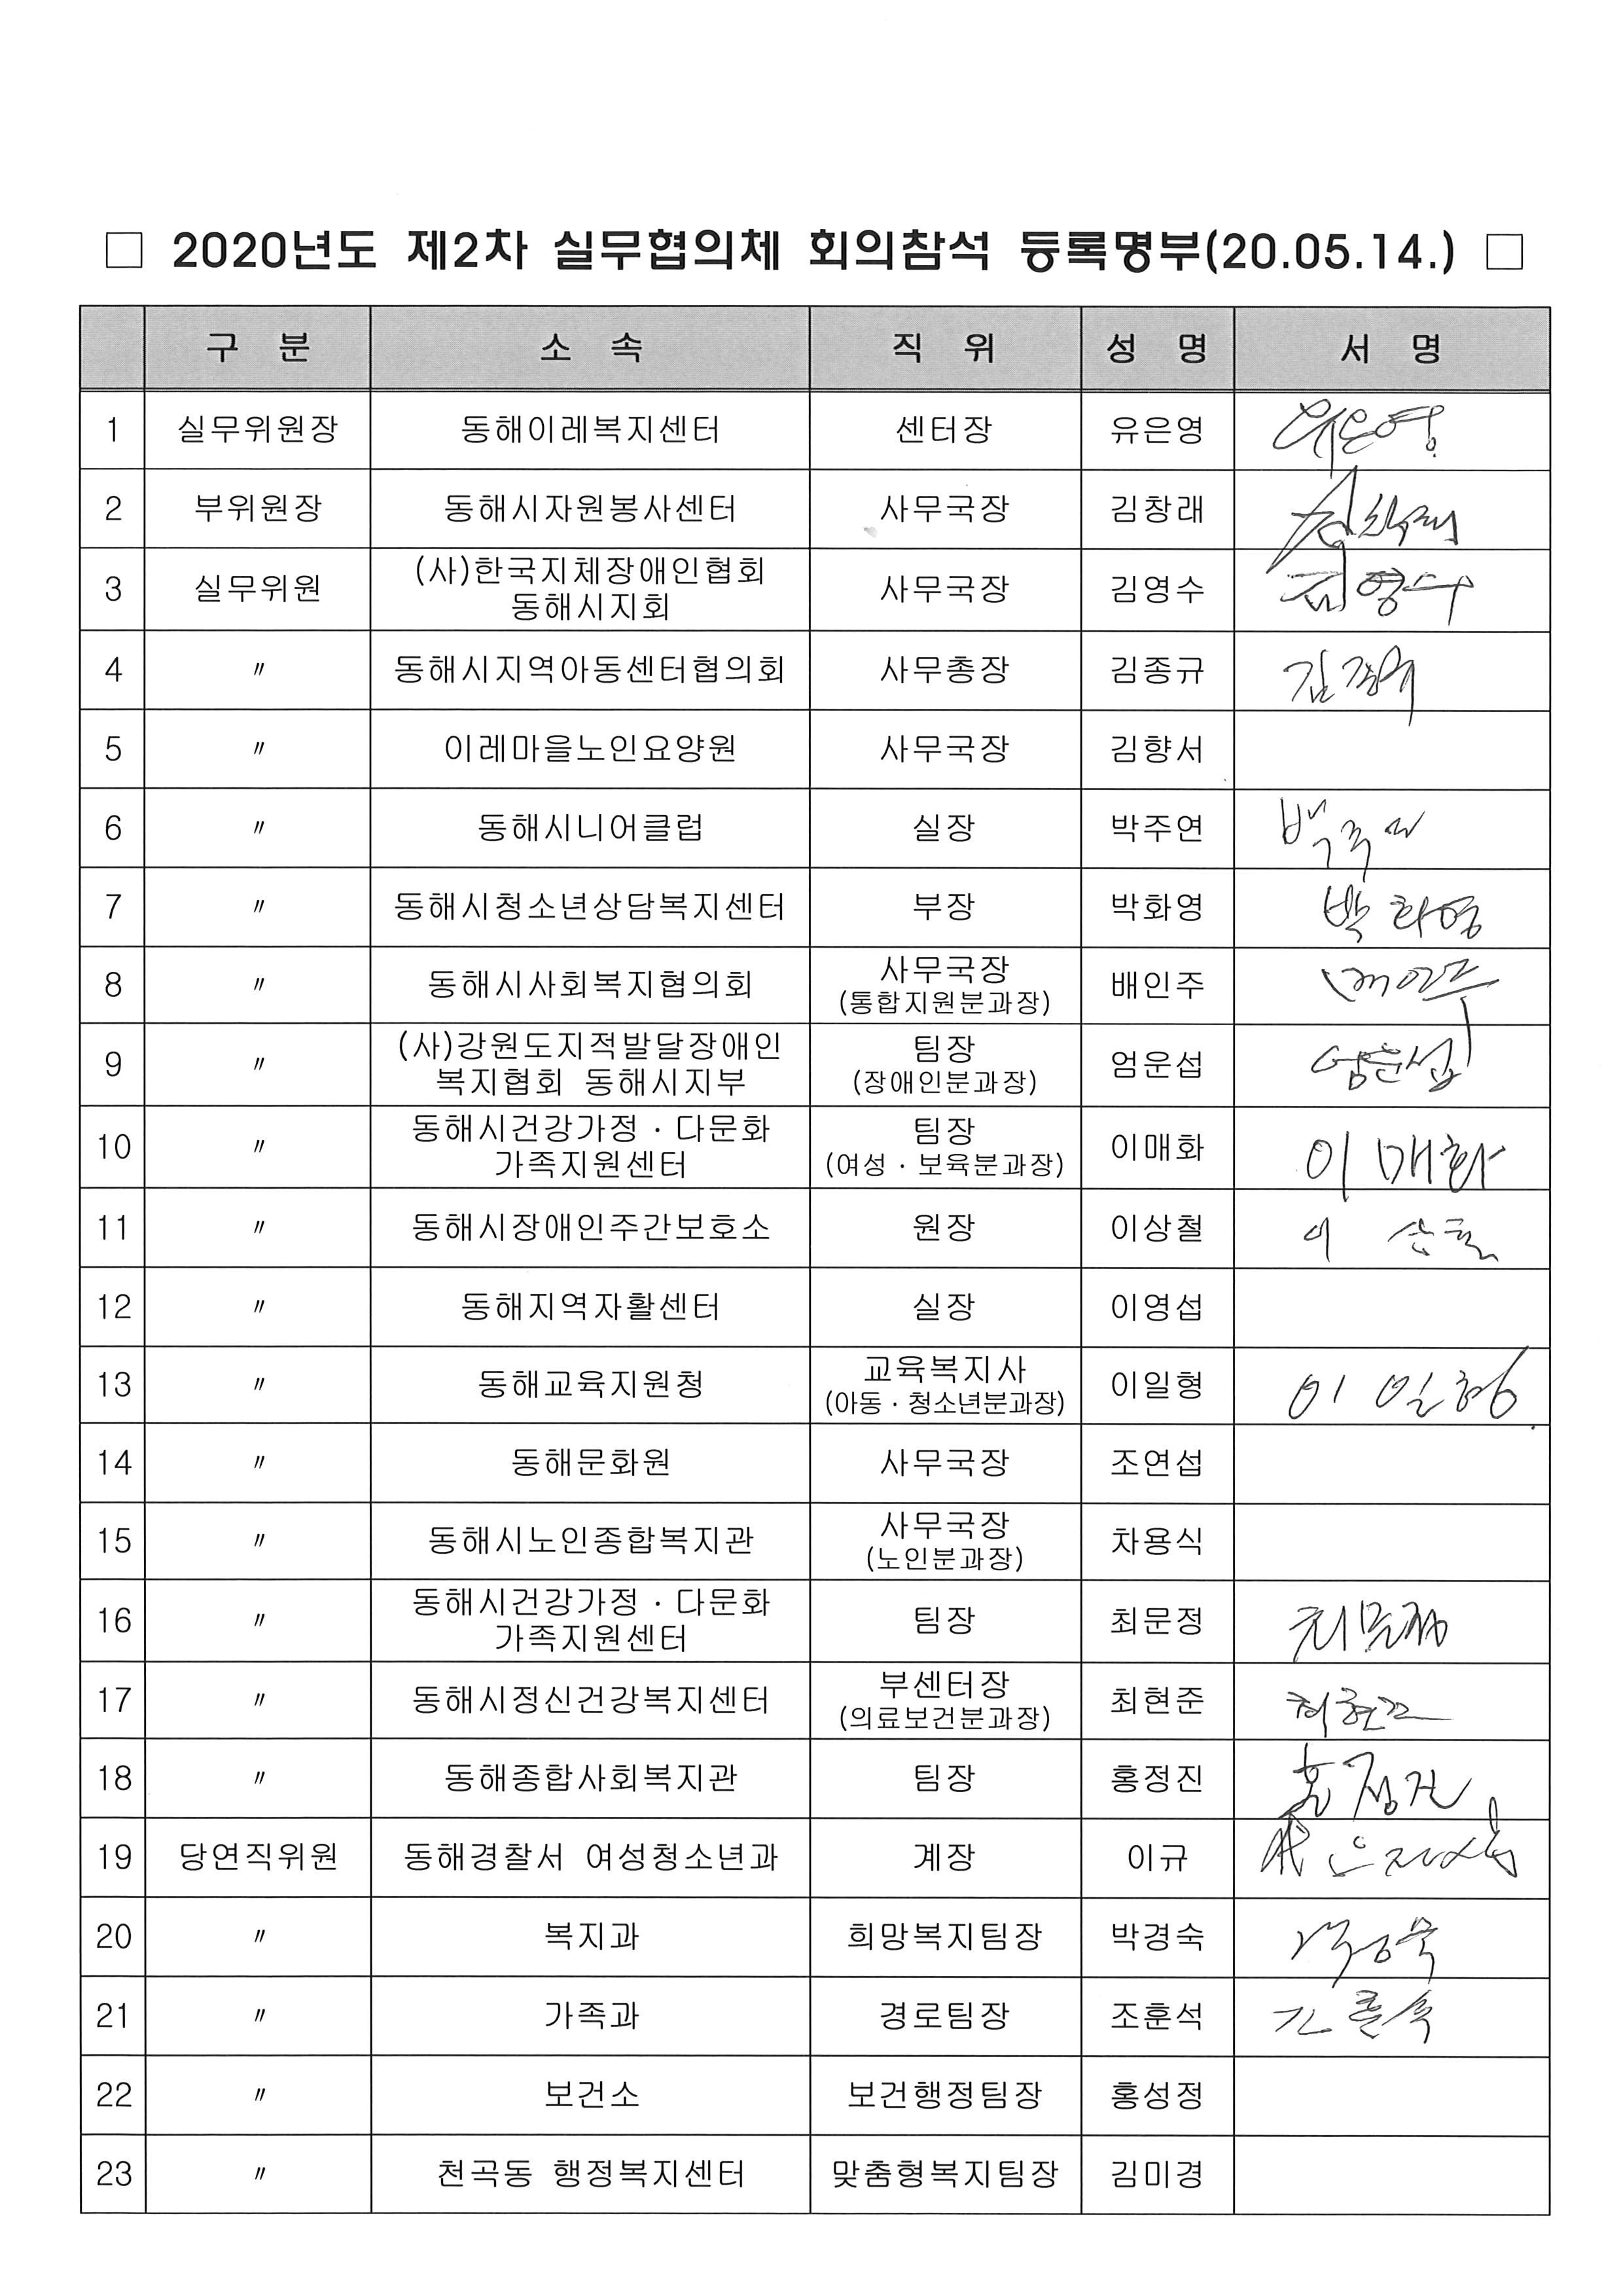 □ 2020년도 제2차 실무협의체 회의참석 등록명부(20.05.14.) □
구 분 소 속 직 위 성 명 서 명
1 실무위원장 동해이레복지센터 센터장 유은영 유은영
2 부위원장 동해시자원봉사센터 사무국장 김창래 김창래
3 실무위원 (사)한국지체장애인협회 동해시지회 사무국장 김영수 김영수
4 〃 동해시지역아동센터협의회 사무총장 김종규 김종규
5 〃 이레마을노인요양원 사무국장 김향서
6 〃 동해시니어클럽 실장 박주연 박주연
7 〃 동해시청소년상담복지센터 부장 박화영 박화영
8 〃 동해시사회복지협의회 사무국장 (통합지원분과장) 배인주 배인주
9 〃 (사)강원도지적발달장애인 복지협회 동해시지부 팀장 (장애인분과장) 엄운섭 엄운섭
10 〃 동해시건강가정 · 다문화 가족지원센터 팀장 (여성 · 보육분과장) 이매화 이매화
11 〃 동해시장애인주간보호소 원장 이상철 이상철
12 〃 동해지역자활센터 실장 이영섭
13 〃 동해교육지원청 교육복지사 (아동 · 청소년분과장) 이일형 이일형
14 〃 동해문화원 사무국장 조연섭
15 〃 동해시노인종합복지관 사무국장 (노인분과장) 차용식
16 〃 동해시건강가정 · 다문화 가족지원센터 팀장 최문정 최문정
17 〃 동해시정신건강복지센터 부센터장 (의료보건분과장) 최현준 최현준
18 〃 동해종합사회복지관 팀장 홍정진 홍정진
19 당연직위원 동해경찰서 여성청소년과 계장 이규
20 〃 복지과 희망복지팀장 박경숙 박경숙
21 〃 가족과 경로팀장 조훈석 조훈석
22 〃 보건소 보건행정팀장 홍성정
23 〃 천곡동 행정복지센터 맞춤형복지팀장 김미경